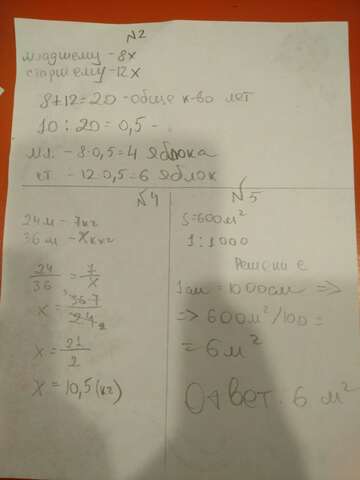 N2
младшему - 8x
старшему - 12x
8+12=20 - общее к-во лет
10 : 20 = 0,5 -
мл. - 8·0,5=4 яблока
ст. - 12·0,5=6 яблок
N4
24м - 7кг
36м - x кг
24/36 = 7/x
x = 36·7/24 2
x = 21/2
x = 10,5 (кг)
N5
S=600м²
1:1000
Решение
1см = 1000см =>
=> 600м²/100 =
= 6м²
Ответ. 6 м²